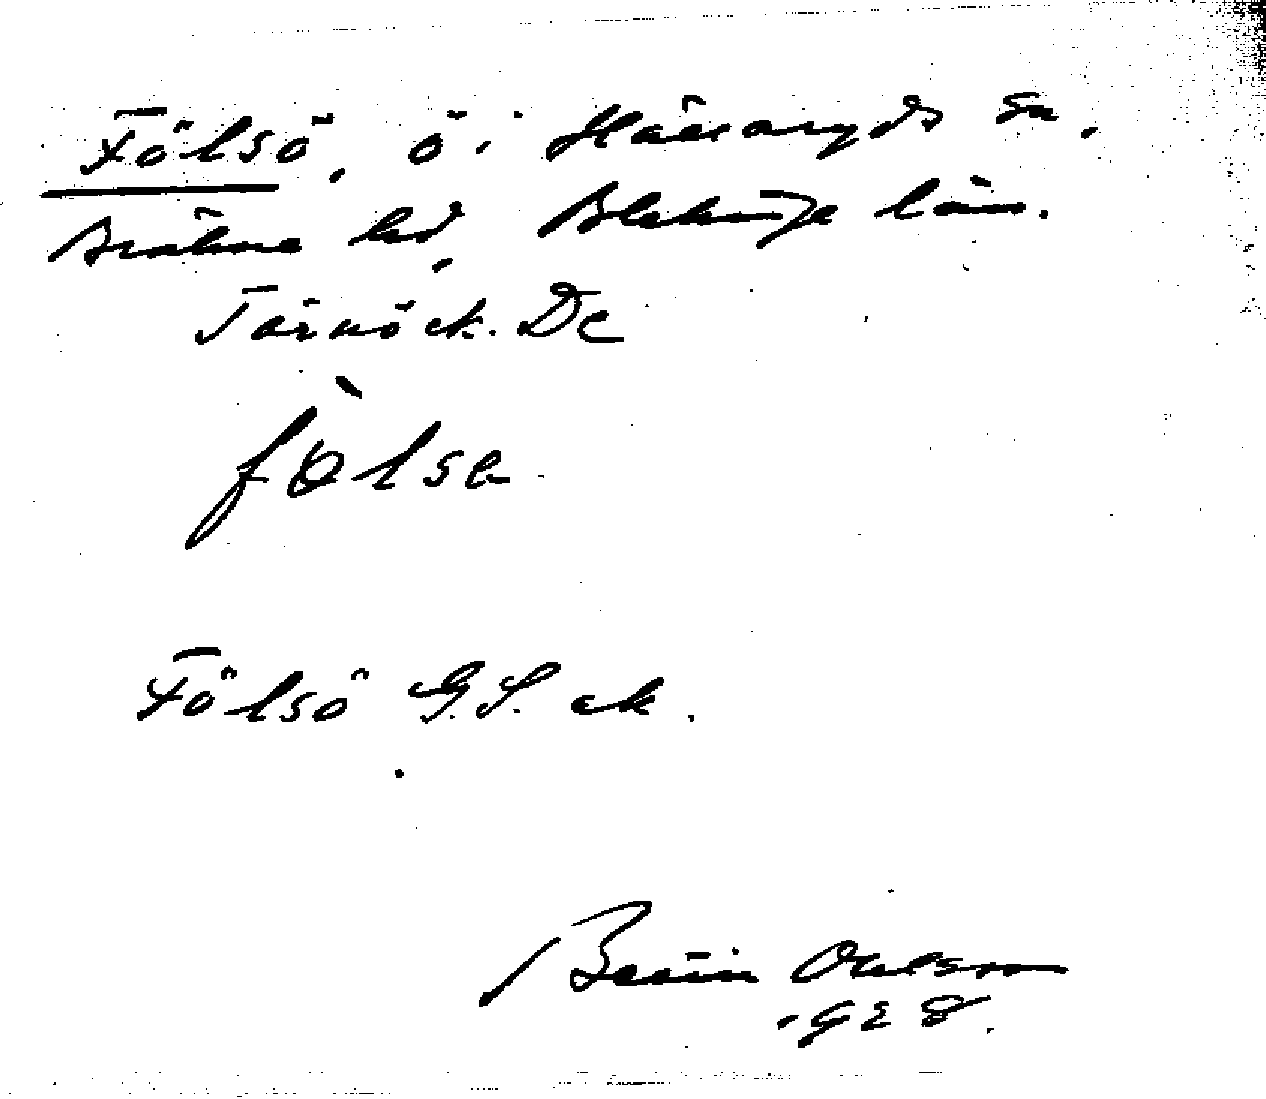 Fölsö, ö i Hällaryds sn.
Bräkne hd, Blekinge län.
Tärnö ek. De
fölsa
Fölsö G.S. ek.
Bertil Ohlsson
1928.